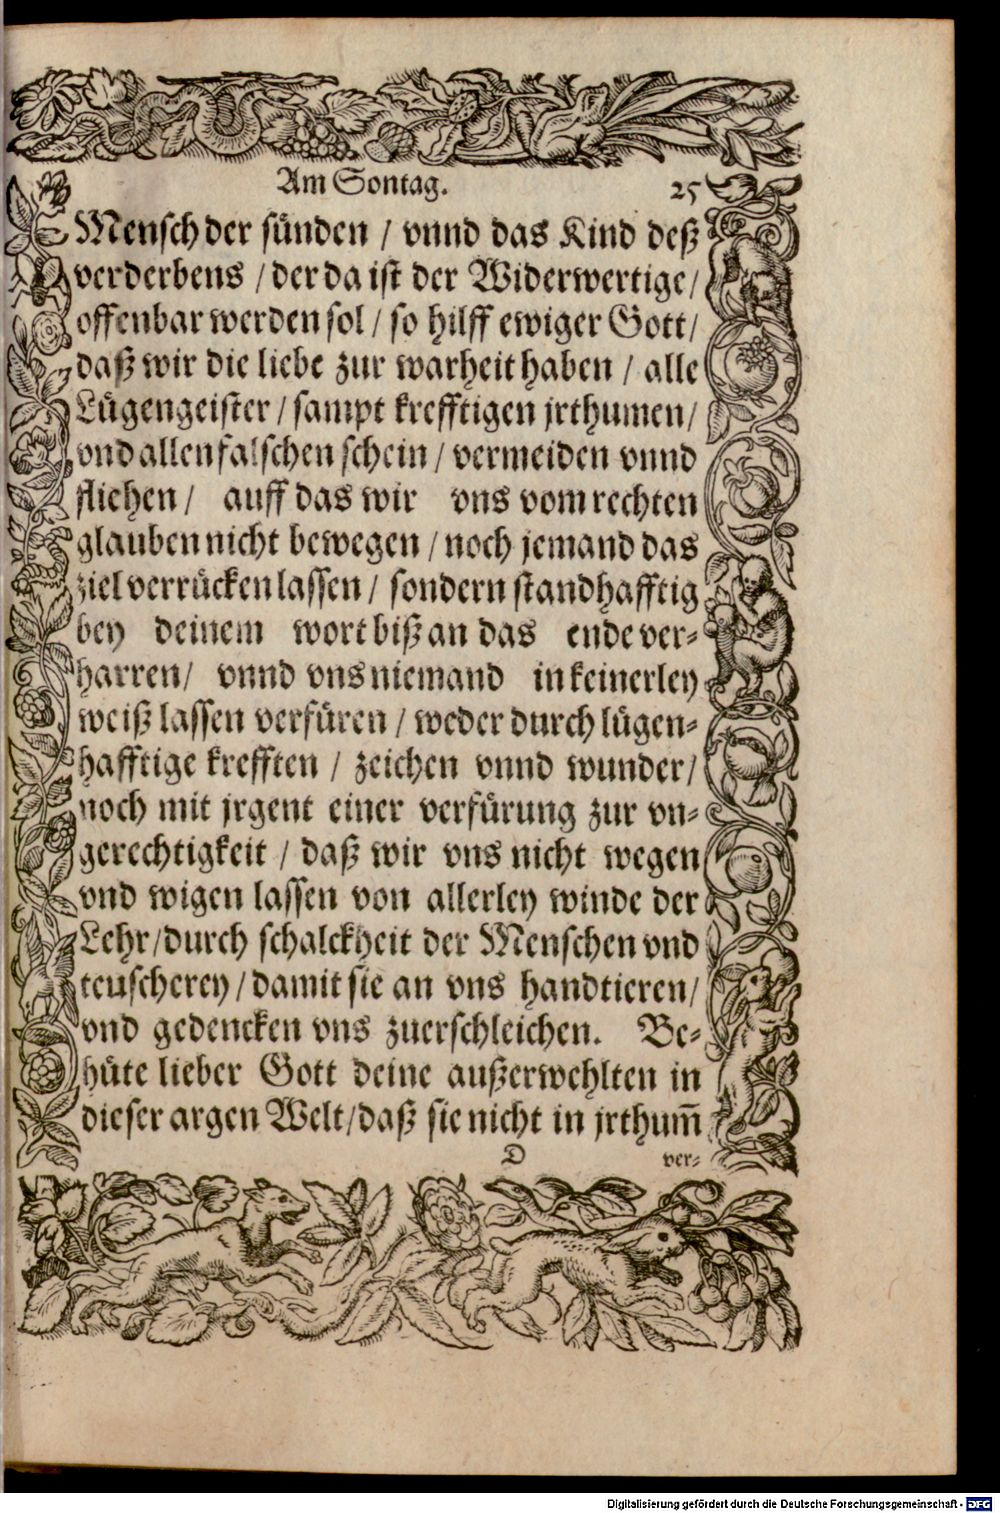 Am Sontag. 25
Mensch der sünden / vnnd das Kind deß
verderbens / der da ist der Widerwertige/
offenbar werden sol / so hilff ewiger Gott/
daß wir die liebe zur warheit haben / alle
Lügengeister / sampt krefftigen jrthumen/
vnd allen falschen schein / vermeiden vnnd
fliehen / auff das wir vns vom rechten
glauben nicht bewegen / noch jemand das
ziel verrücken lassen / sondern standhafftig
bey deinem wort biß an das ende ver-
harren/ vnnd vns niemand in keinerley
weiß lassen verfüren / weder durch lügen-
hafftige krefften / zeichen vnnd wunder/
noch mit jrgent einer verfürung zur vn-
gerechtigkeit / daß wir vns nicht wegen
vnd wigen lassen von allerley winde der
Lehr/durch schalckheit der Menschen vnd
teuscherey / damit sie an vns handtieren/
vnd gedencken vns zuerschleichen. Be-
hüte lieber Gott deine außerwehlten in
dieser argen Welt/daß sie nicht in jrthum̄
D ver-
Digitalisierung gefördert durch die Deutsche Forschungsgemeinschaft - DFG